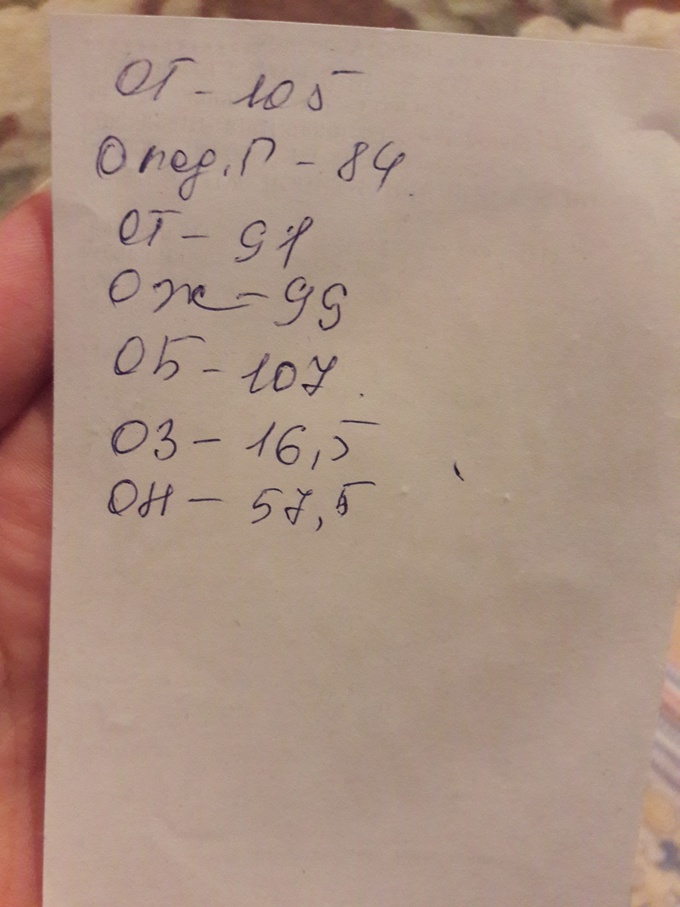 ОГ - 105
О под. Г - 84
ОТ - 91
Ож - 99
ОБ - 107
ОЗ - 16,5
ОН - 57,5